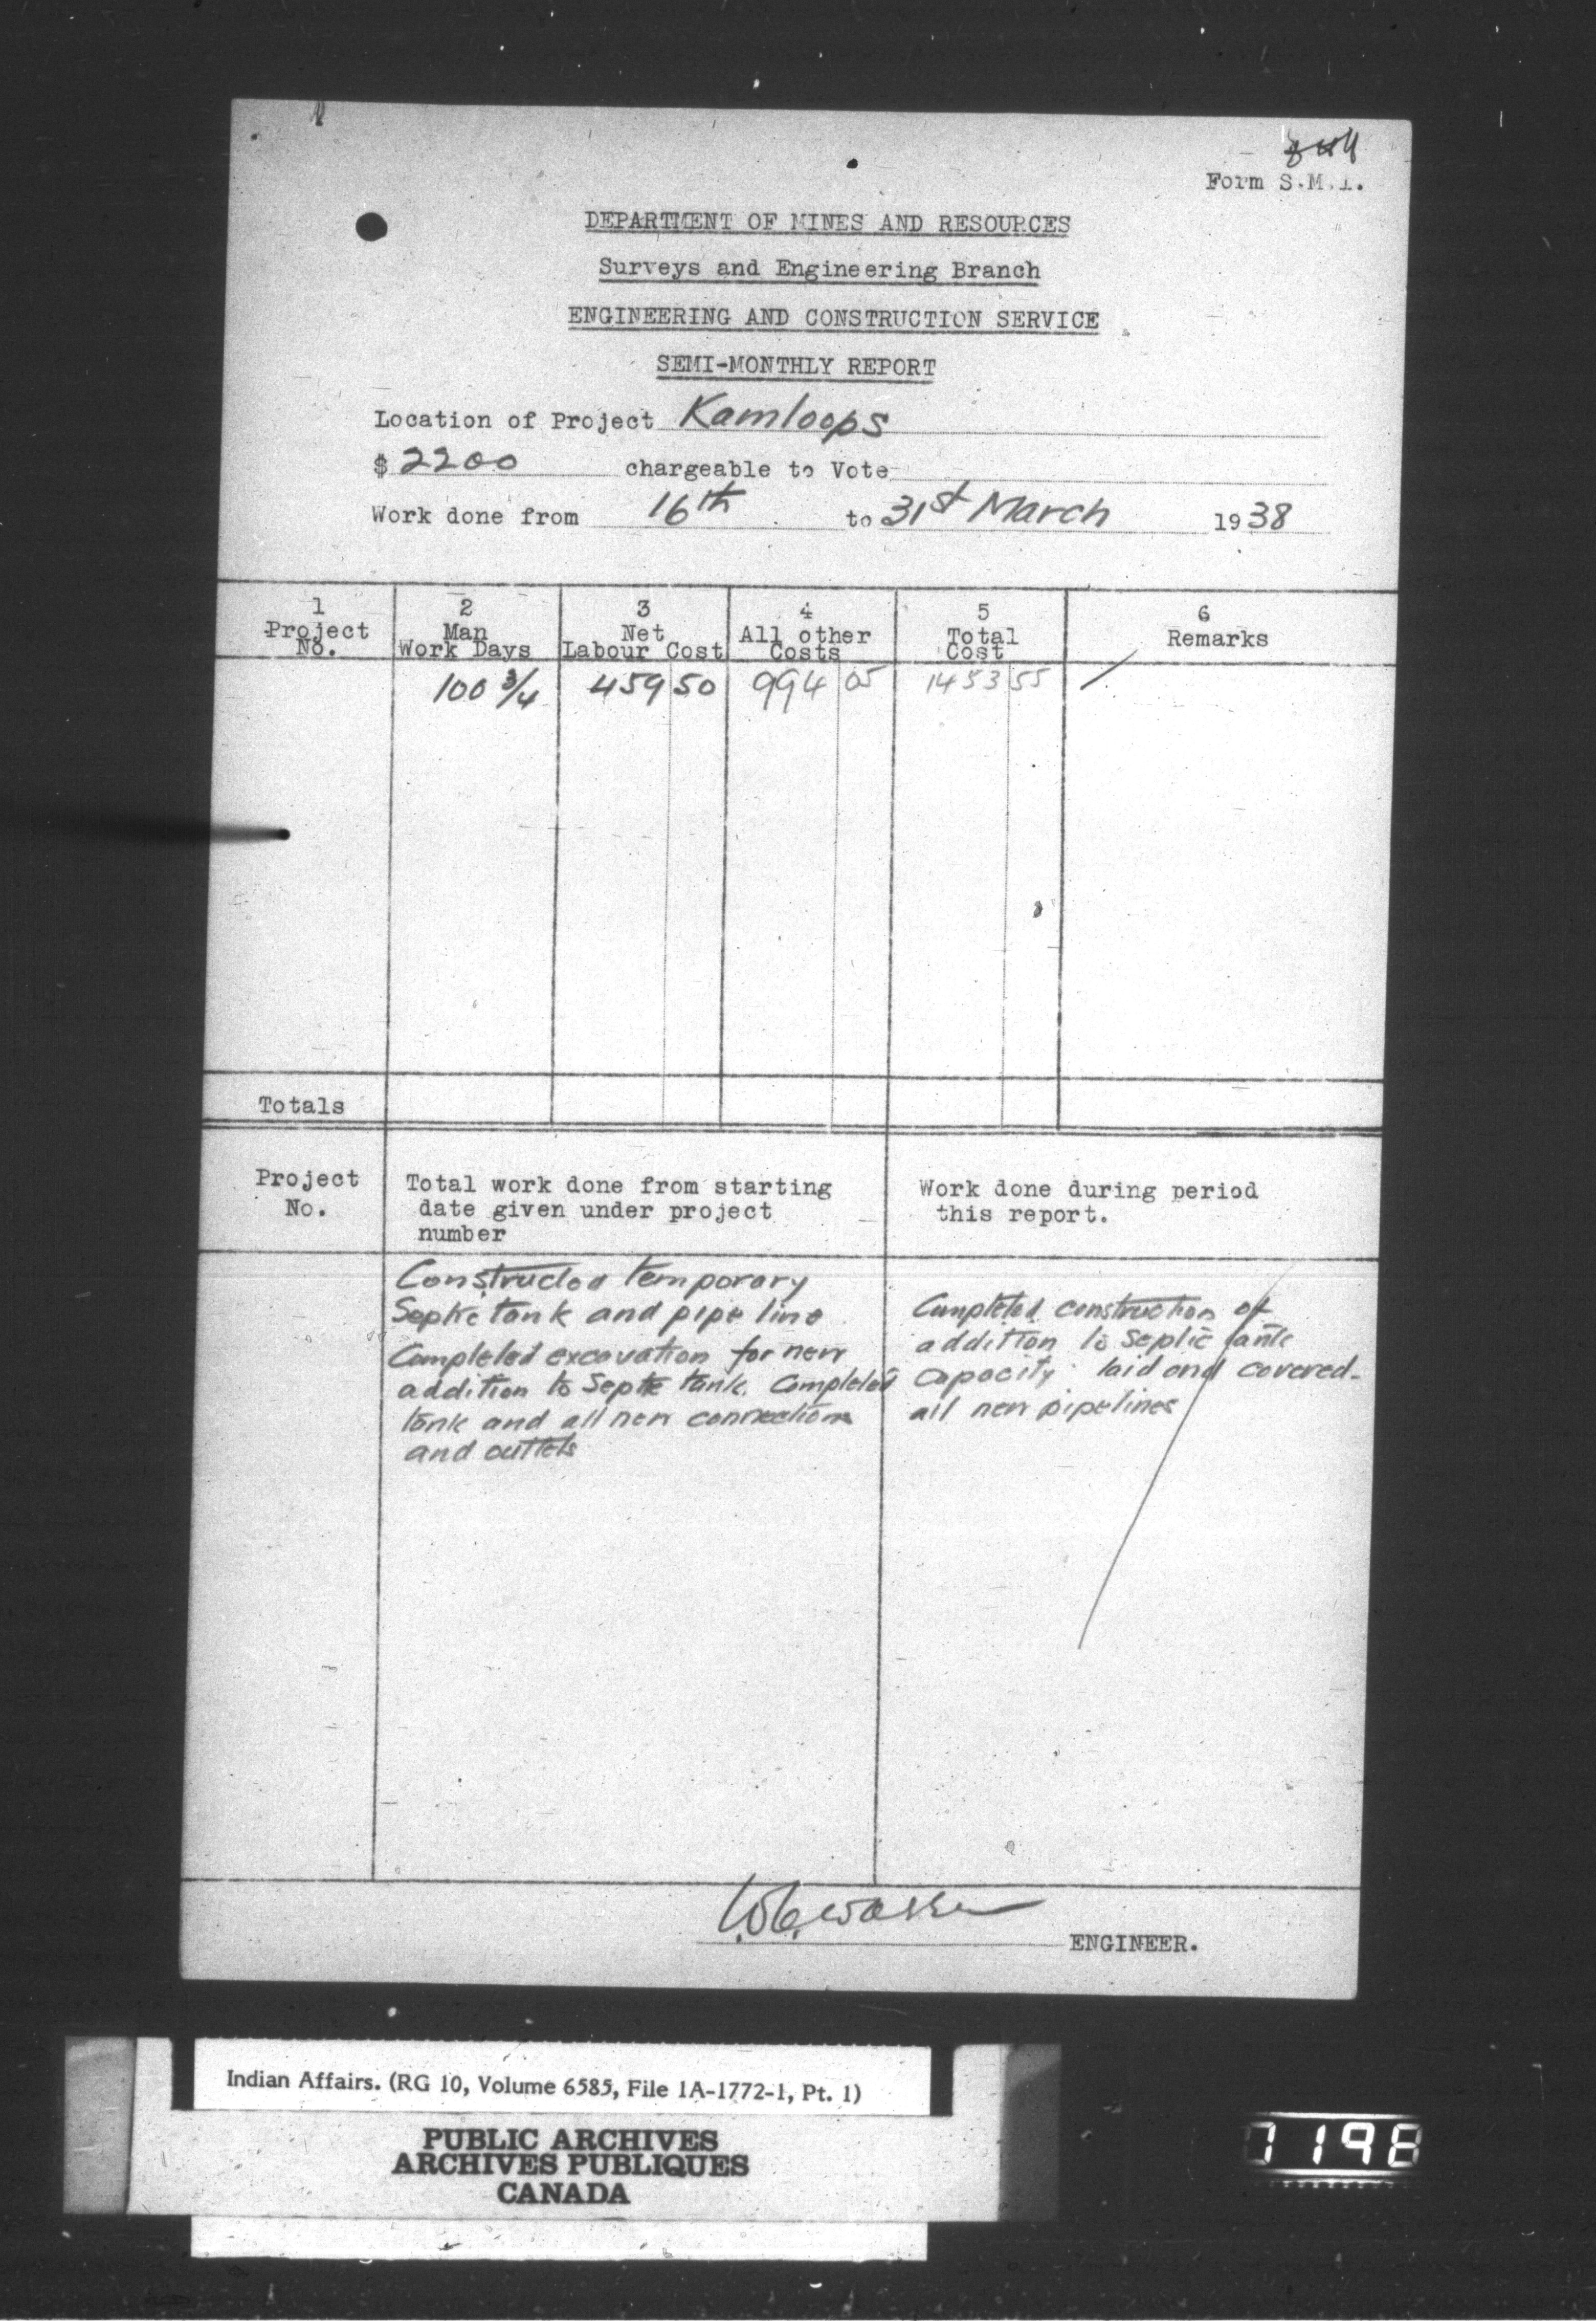 Form S.M.1.
DEPARTMENT OF MINES AND RESOURCES
Surveys and Engineering Branch
ENGINEERING AND CONSTRUCTION SERVICE
SEMI-MONTHLY REPORT
Location of Project Kamloops
$ 2200 chargeable to Vote
Work done from 16th to 31st March 1938
1 2 3 4 5 6
Project No. Man Work Days Net Labour Cost All other Costs Total Cost Remarks
100 3/4 459 50 994 05 1453 55
Totals
Project
No.
Total work done from starting
date given under project
number
Work done during period
this report.
Constructed temporary
Septic tank and pipe line
Completed excavation for new
addition to Septic tank. Completed
tank and all new connections
and outlets
Completed construction of
addition to Septic tank
capacity laid and covered
all new pipelines
ENGINEER.
Indian Affairs. (RG 10, Volume 6585, File 1A-1772-1, Pt. 1)
PUBLIC ARCHIVES
ARCHIVES PUBLIQUES
CANADA
1198